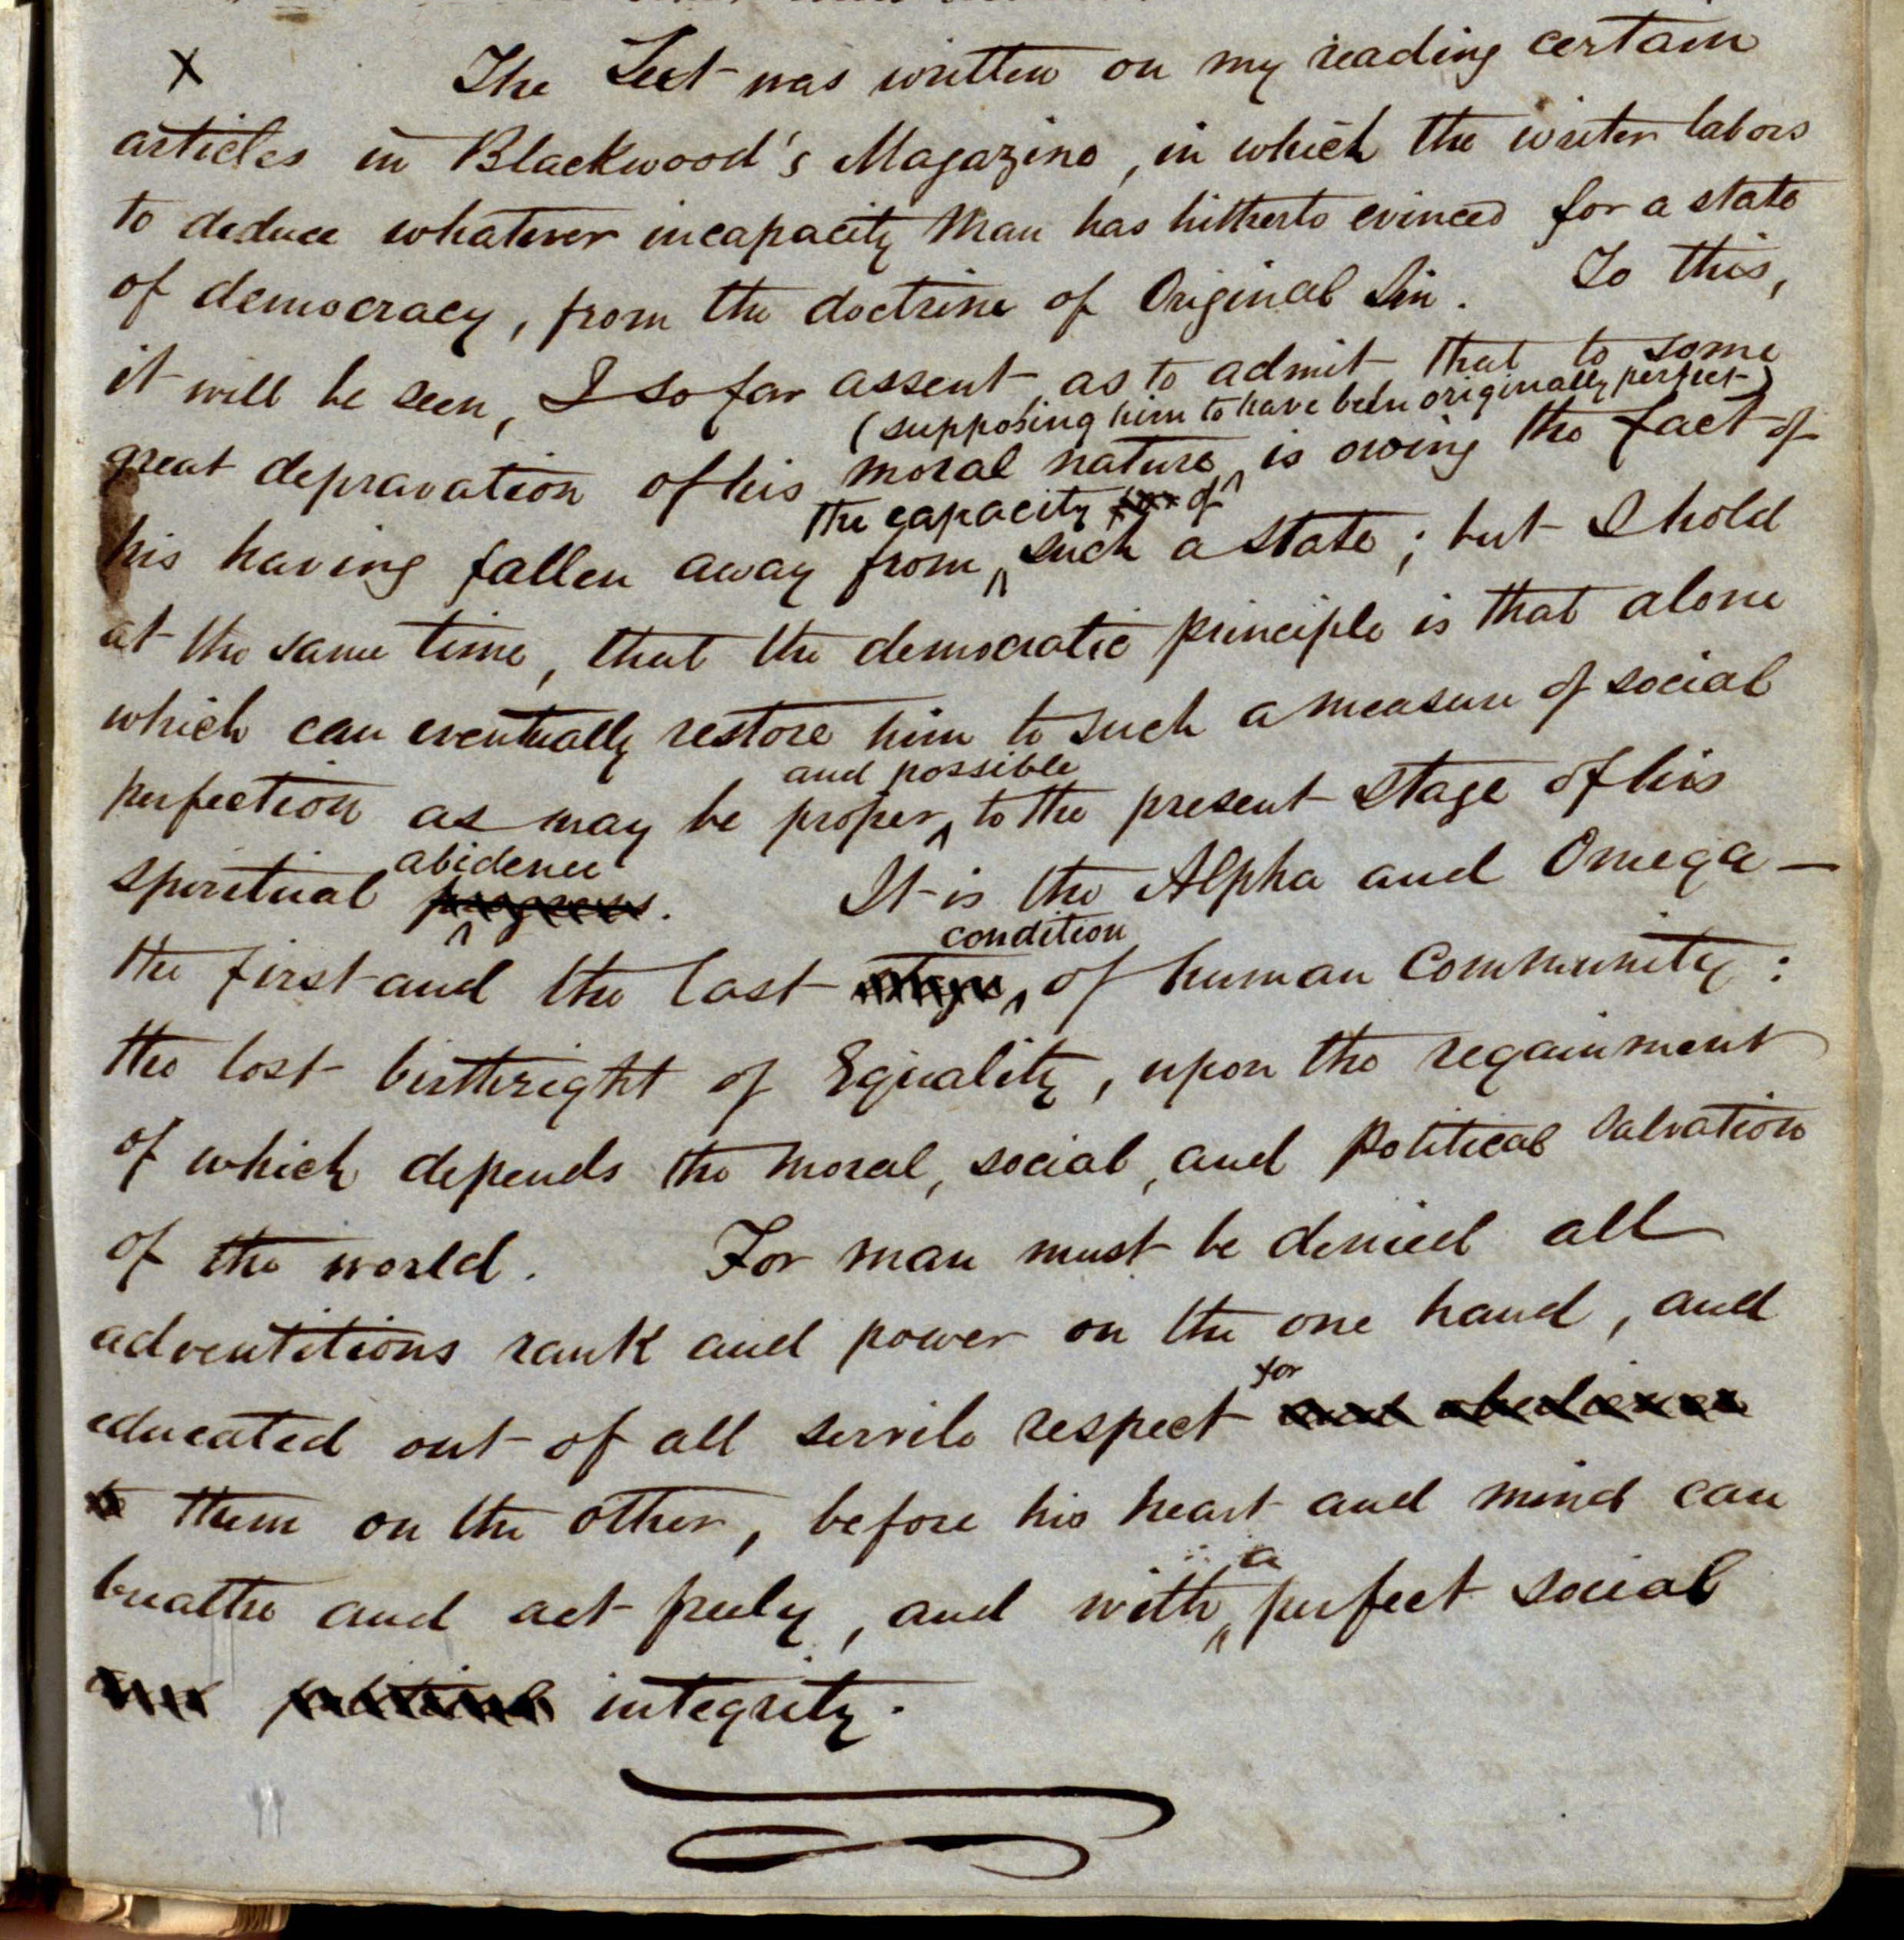 X The Text was written on my reading certain
articles in Blackwood's Magazine, in which the writer labors
to deduce whatever incapacity Man has hitherto evinced for a state
of democracy, from the doctrine of Original Sin. To this,
it will be seen, I so far assent as to admit that to some
(supposing him to have been originally perfect)
great depravation of his moral nature is owing the fact of
the capacity for of
his having fallen away from such a state; but I hold
at the same time, that the democratic principle is that alone
which can eventually restore him to such a measure of social
and possible
perfection as may be proper to the present stage of his
abidence
spiritual progress. It is the Alpha and Omega—
condition
the first and the last stage, of human Community:
the lost birthright of Equality, upon the regainment
of which depends the moral, social, and political salvation
of the world. For man must be denied all
adventitious rank and power on the one hand, and
for
educated out of all servile respect and obedience
to them on the other, before his heart and mind can
a
breathe and act freely, and with perfect social
and political integrity.